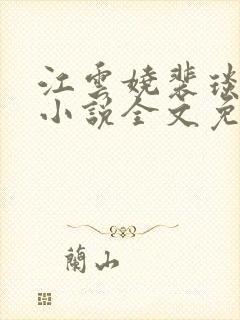 江雲嬈裴琰
小說全文免
蘭山